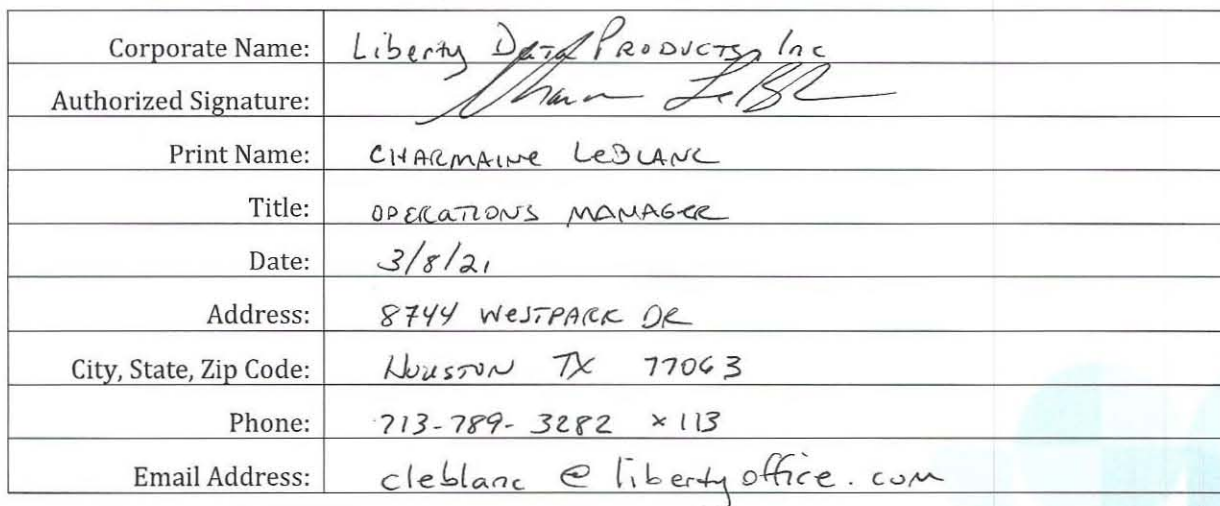 Corporate Name: Liberty Data Products, Inc
Authorized Signature:
Print Name: CHARMAINE LEBLANC
Title: OPERATIONS MANAGER
Date: 3/8/21
Address: 8744 WESTPARK DR
City, State, Zip Code: HOUSTON TX 77063
Phone: 713-789-3282 x113
Email Address: cleblanc@libertyoffice.com